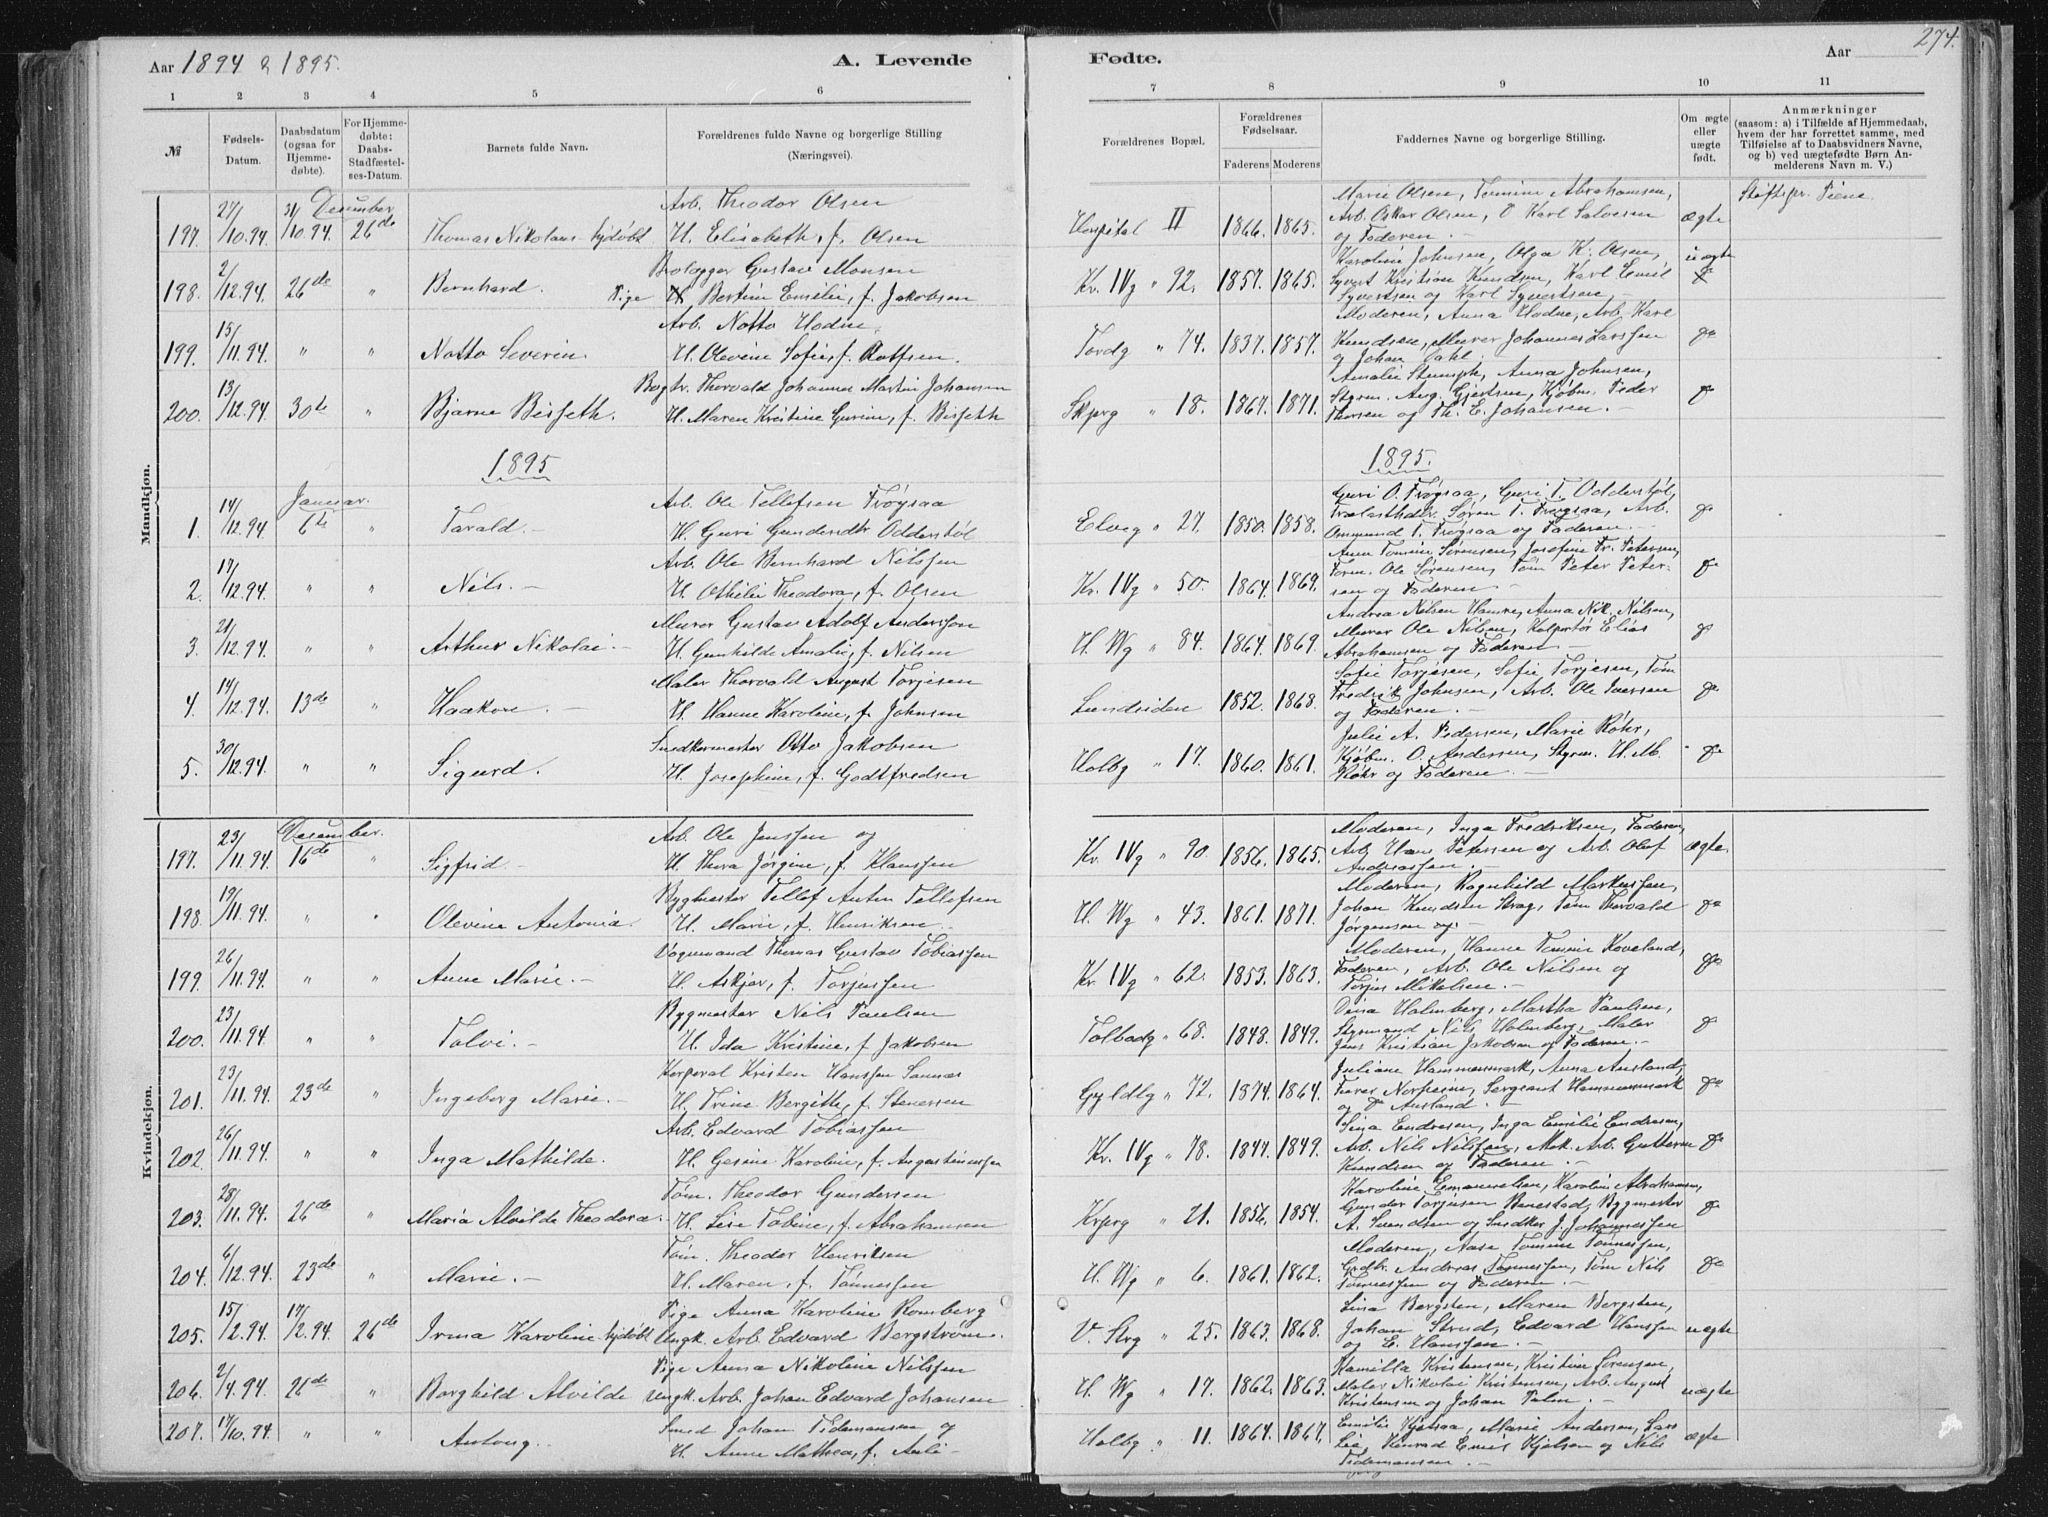 274.
Aar 1894 & 1895.
A. Levende
Fødte.
Aar
1 2 3 4 5 6 7 8 9 10 11
№
Fødsels-Datum.
Daabsdatum (ogsaa for Hjemmedøbte).
For Hjemmedøbte: Daabs-Stadfæstelses-Datum.
Barnets fulde Navn.
Forældrenes fulde Navne og borgerlige Stilling (Næringsvei).
Forældrenes Bopæl.
Forældrenes Fødselsaar.
Faderens Moderens
Faddernes Navne og borgerlige Stilling.
Om ægte eller uægte født.
Anmærkninger (saasom: a) i Tilfælde af Hjemmedaab, hvem der har forrettet samme, med Tilføielse af to Daabsvidners Navne, og b) ved uægtefødte Børn Anmelderens Navn m. V.)
Mandkjøn.
December
Arb. Theodor Olsen Marie Olsen, Tomine Abrahamsen, Stiftspr. Tiene
197. 27/10.94. 31/10.94. 26de Thomas Nikolaus hjdøbt H. Elisabeth, f. Olsen Hospital II 1866. 1865. Arb. Oskar Olsen, Karl Salvesen og Faderen.- ægte
Gustav Monsen Karoline Johnsen, Olga K. Olsen,
198. 2/12.94. 26de " Bernhard. Pige Bertine Emilie, f. Jakobsen Kr. IVg " 92. 1857. 1865. Syvert Kristian Knudsen, Karl Emil Syvertsen og Karl Syvertsen.- uægte
Arb. Notto Hodne, Moderen, Anna Hodne, Arb. Karl
199. 15/11.94. " " Notto Severin. H. Olevine Sofie, f. Rolfsen. Tordg " 74. 1837. 1857. Knudsen, Murer Johannes Larssen og Johan Dahl do
Bogtr. Thorvald Johannes Martin Johansen Amalie Stumph, Anna Johnsen,
200. 13/12.94 30te " Bjarne Bisseth. H. Maren Kristine Gurine, f. Bisseth Skjprg " 18. 1867. 1871. Styrm. Aug. Gjertsen, Kjøbm. Peder Thorsen og Th. E. Johansen.- do
1895 1895.
Januar.
Arb. Ole Tellefsen Frøysaa Guri O. Frøysaa, Guri T. Odderstøl,
1. 14/12.94 6te " Tarald.- H. Guri Gundersdtr Odderstøl Elveg " 27. 1850. 1858. Trælasthdlr. Søren T. Frøysaa, Arb. Ommund T. Frøysaa og Faderen.- do
Arb. Ole Bernhard Nilssen Anna Tomine Sørensen, Josefine Fr. Petersen,
2. 17/12.94. " " Nils.- H. Othilie Theodora, f. Olsen Kr. IVg " 50. 1864. 1869. Form. Ole Sørensen, Tøm Peter Petersen og Faderen.- do
Murer Gustav Adolf Anderssen Andrea Nilsen Hamre, Anna Nik. Nilsen,
3. 21/12.94. " " Arthur Nikolai.- H. Gunhilde Amalie, f. Nilsen H. Wg " 84. 1864. 1869. Murer Ole Nilsen, Kolportør Elias Abrahamsen og Faderen.- do
Maler Thorvald August Torjesen Sofie Torjesen, Sofie Torjesen, Tøm
4. 14/12.94. 13de " Haakon.- H. Hanne Karoline, f. Johnsen Lundsiden 1852. 1868. Fredrik Johnsen, Arb. Ole Iversen og Faderen.- do
Snedkermester Otto Jakobsen Julie A. Pedersen, Marie Röhr,
5. 30/12.94. " " Sigurd. H. Josephine, f. Godtfredsen Holbg " 17. 1860. 1861. Kjøbm. O. Andersen, Styrm. H. M. Röhr og Faderen.- do
Kvindekjøn.
December.
Arb. Ole Jenssen og Moderen, Inga Fredriksen, Faderen,
197. 23/11.94. 16de " Sigfrid- H. Thora Jørgine, f. Klanssen Kr. IVg " 90. 1856. 1865. Arb. Hans Petersen og Arb. Olaf Andreassen.- ægte.
Bygmester Tellef Anton Tellefsen Moderen, Ragnhild Markussen,
198. 19/11.94. " " Olevine Antonia. H. Marie, f. Henriksen H. Wg " 43. 1861. 1871. Johan Knudsen Krag, Tøm Thorvald Jørgensen og.- do
Vognmand Thomas Gustav Tobiassen Moderen, Hanne Tomine Koveland,
199. 26/11.94. " " Anne Marie.- H. Askjær, f. Torjussen Kr. IVg " 62. 1853. 1863. Faderen, Arb. Ole Nilsen og Torjus Mikalsen.- do
Bygmester Nils Paulsen Dina Holmberg, Martha Paulsen,
200. 23/11.94. " " Tolvi.- H. Ida Kristine, f. Jakobsen Tolbodg " 68. 1848. 1849. Styrmand Nils Holmberg, Maler Jens Kristian Jakobsen og Faderen.- do
Korporal Kristen Hanssen Sannæs Juliane Hammersmark, Anna Ausland,
201. 23/11.94. 23de " Ingeborg Marie.- H. Trine Bergitte, f. Stenersen Gyldlg " 72. 1874. 1864. Furer Norheim, Sergeant Hammersmark og do Ausland.- do
Arb. Edvard Tobiassen Sina Endresen, Inga Emilie Endresen,
202. 26/11.94. " " Inga Mathilde. H. Gesine Karoline, f. Augustinussen Kr. IVg " 78. 1847. 1849. Arb. Nils Nilssen, Mek. Arb. Guttorm Knudsen og Faderen.- do
Tøm. Theodor Gundersen Karoline Emanuelsen, Karoline Abrahamsen,
203. 28/11.94. 26de " Maria Alvilde Theodora.- H. Lise Tobine, f. Abrahamsen Krprg " 21. 1856. 1854. Gunder Torjusen Benestad, Bygmester A. Svendsen og Snedker J. Johannessen do
Tøm. Theodor Henriksen Moderen, Aase Tomine Tønnessen,
204. 6/12.94. 23de " Marie.- H. Maren, f. Tønnessen H. Wg " 6. 1861. 1862. Grdb. Andreas Tønnessen, Tøm Nils Tønnessen og Faderen.- do
Pige Anna Karoline Romberg Lina Bergsten, Maren Bergsten,
205. 15/2.94. 17/2.94. 26de Irma Karoline hjdøbt Ungk. Arb. Edvard Bergstrøm V. Strg " 25. 1863. 1868. Johan Strud, Edvard Hanssen og E. Hanssen.- uægte
Pige Anna Nikoline Nilssen Kamilla Kristensen, Kristine Sørensen,
206. 2/4.94. 26de " Borghild Alvilde Ungk. Arb. Johan Edvard Johansen H. Wg " 17. 1862. 1863. Maler Nikolai Kristensen, Arb. August Kristensen og Johan Palm.- uægte
Smed Johan Tidemansen og Emilie Hjelsaa, Marie Andersen, Lars
207. 17/10.94. " " Antony.- H. Anne Mathea, f. Holbg " 11. 1864. 1867. Lie, Konrad Emil Hjelsen og Nils Tidemansen.- ægte